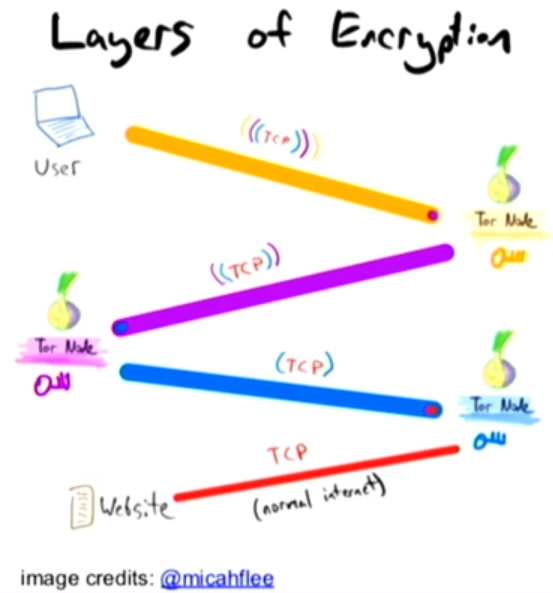 Layers of Encryption
(((TCP)))
User
Tor Node
((TCP))
Tor Node
(TCP)
Tor Node
TCP
Website
(normal internet)
image credits: @micahflee